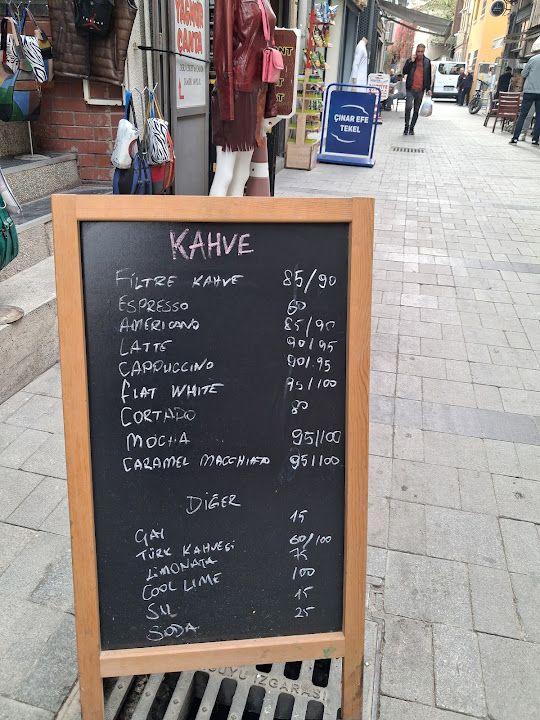 YAĞMUR
ÇANTA
ÇINAR EFE
TEKEL
KAHVE
FİLTRE KAHVE 85/90
ESPRESSO 60
AMERICANO 85/90
LATTE 90/95
CAPPUCCINO 90/95
FLAT WHITE 95/100
CORTADO 80
MOCHA 95/100
CARAMEL MACCHIATO 95/100
DİĞER
ÇAY 15
TÜRK KAHVESİ 60/100
LIMONATA 75
COOL LIME 100
SU 15
SODA 25
IZGARASI